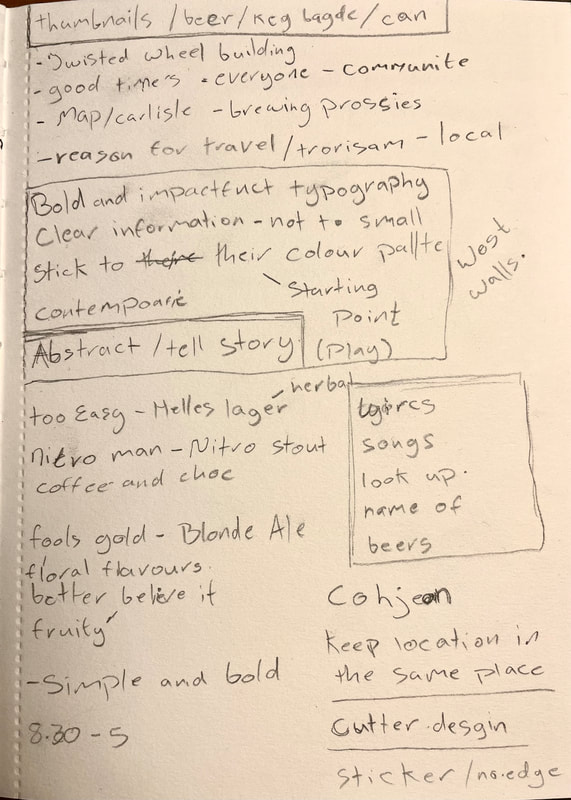 thumbnails /beer/keg bagde/can
- Twisted wheel building
- good times - everyone - communite
- Map/carlisle - brewing prossies
- reason for travel/trorisam - local
Bold and impactfuct typography
Clear information - not to small
stick to their colour pallte
starting
contemporarie
point
(play)
West
walls.
Abstract /tell story
herbal
too Easy - Helles lager
nitro man - Nitro stout
coffee and choc
fools gold - Blonde Ale
floral flavours.
better belive it
fruity
- Simple and bold
8.30 - 5
lyircs
songs
look up.
name of
beers
Cohjeon
keep location in
the same place
Cutter.desgin
sticker/no.edge